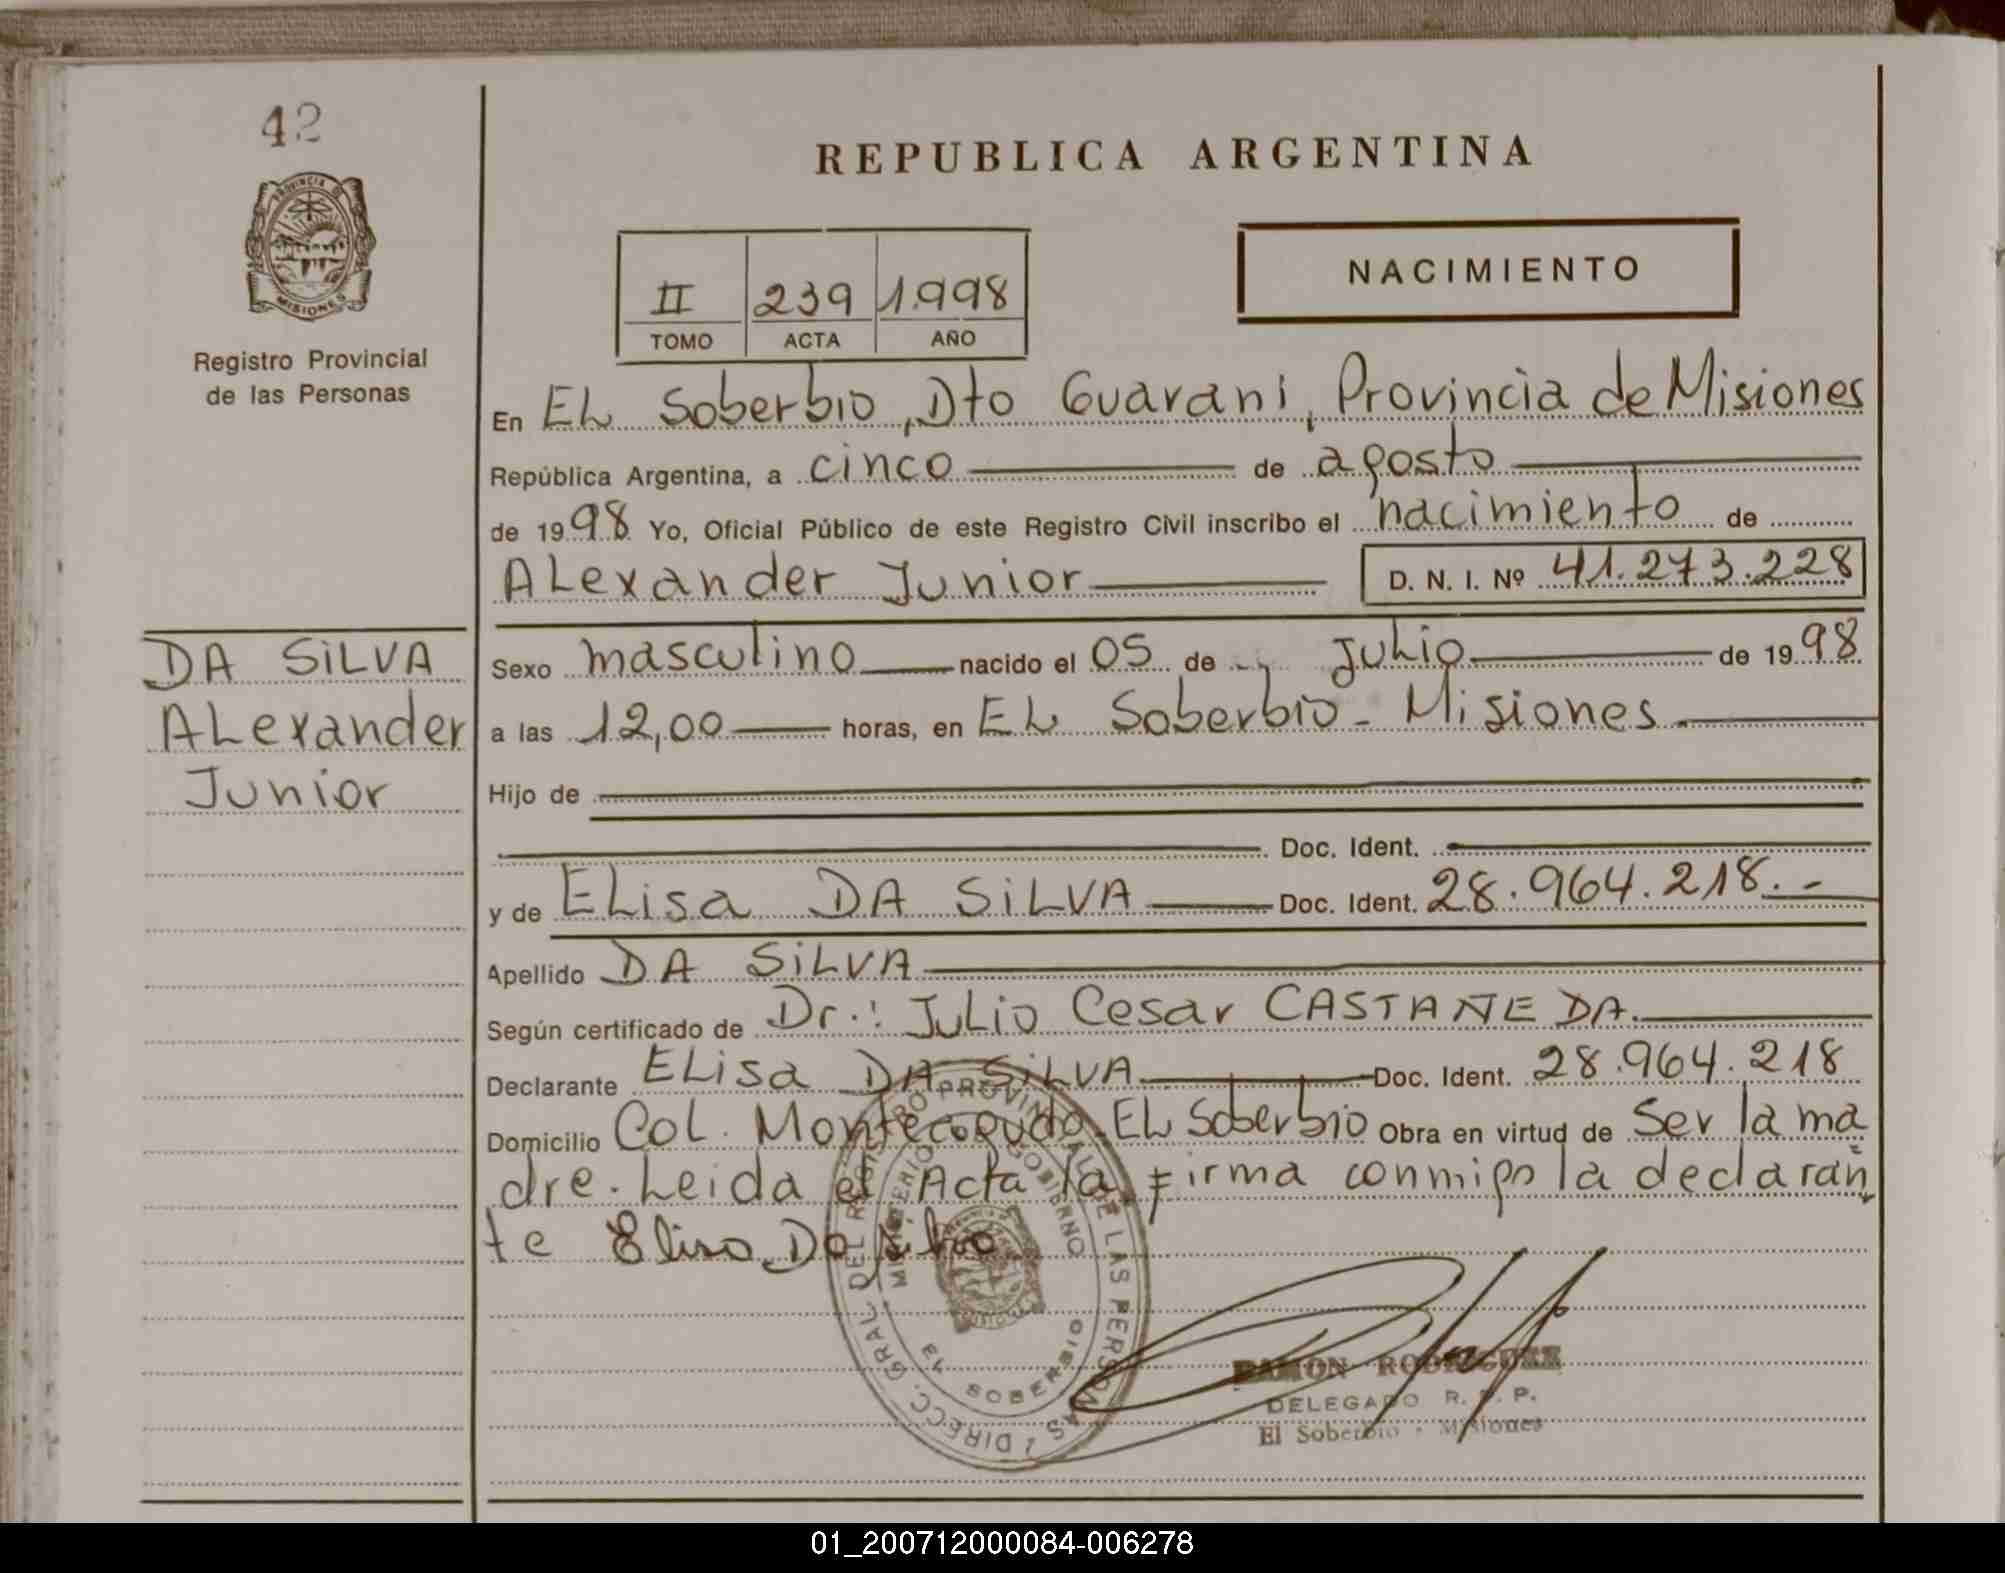 42
PROVINCIA DE
MISIONES
Registro Provincial
de las Personas
REPUBLICA ARGENTINA
II 239 1.998
TOMO ACTA AÑO
NACIMIENTO
En EL Soberbio, Dto Guarani, Provincia de Misiones
República Argentina, a cinco de agosto
de 1998 Yo, Oficial Público de este Registro Civil inscribo el nacimiento de
ALexander Junior D. N. I. Nº 41.273.228
DA SiLVA
ALexander
Junior
Sexo masculino nacido el 05 de Julio de 1998
a las 12,00 horas, en EL Soberbio - Misiones
Hijo de
Doc. Ident.
y de ELisa DA SiLVA Doc. Ident. 28.964.218.-
Apellido DA SiLVA
Según certificado de Dr.: JuLio Cesar CASTAÑEDA.
Declarante ELisa DA SiLVA Doc. Ident. 28.964.218
Domicilio CoL. Monteagudo, EL Soberbio Obra en virtud de Ser la ma
dre. Leida el Acta la firma conmigo la declaran
te Elisa Da Silva
DIRECC. GRAL. DEL REGISTRO PROVINCIAL DE LAS PERSONAS
MINISTERIO GOBIERNO
EL SOBERBIO
RAMON RODRIGUEZ
DELEGADO R. P. P.
El Soberbio - Misiones
01_200712000084-006278